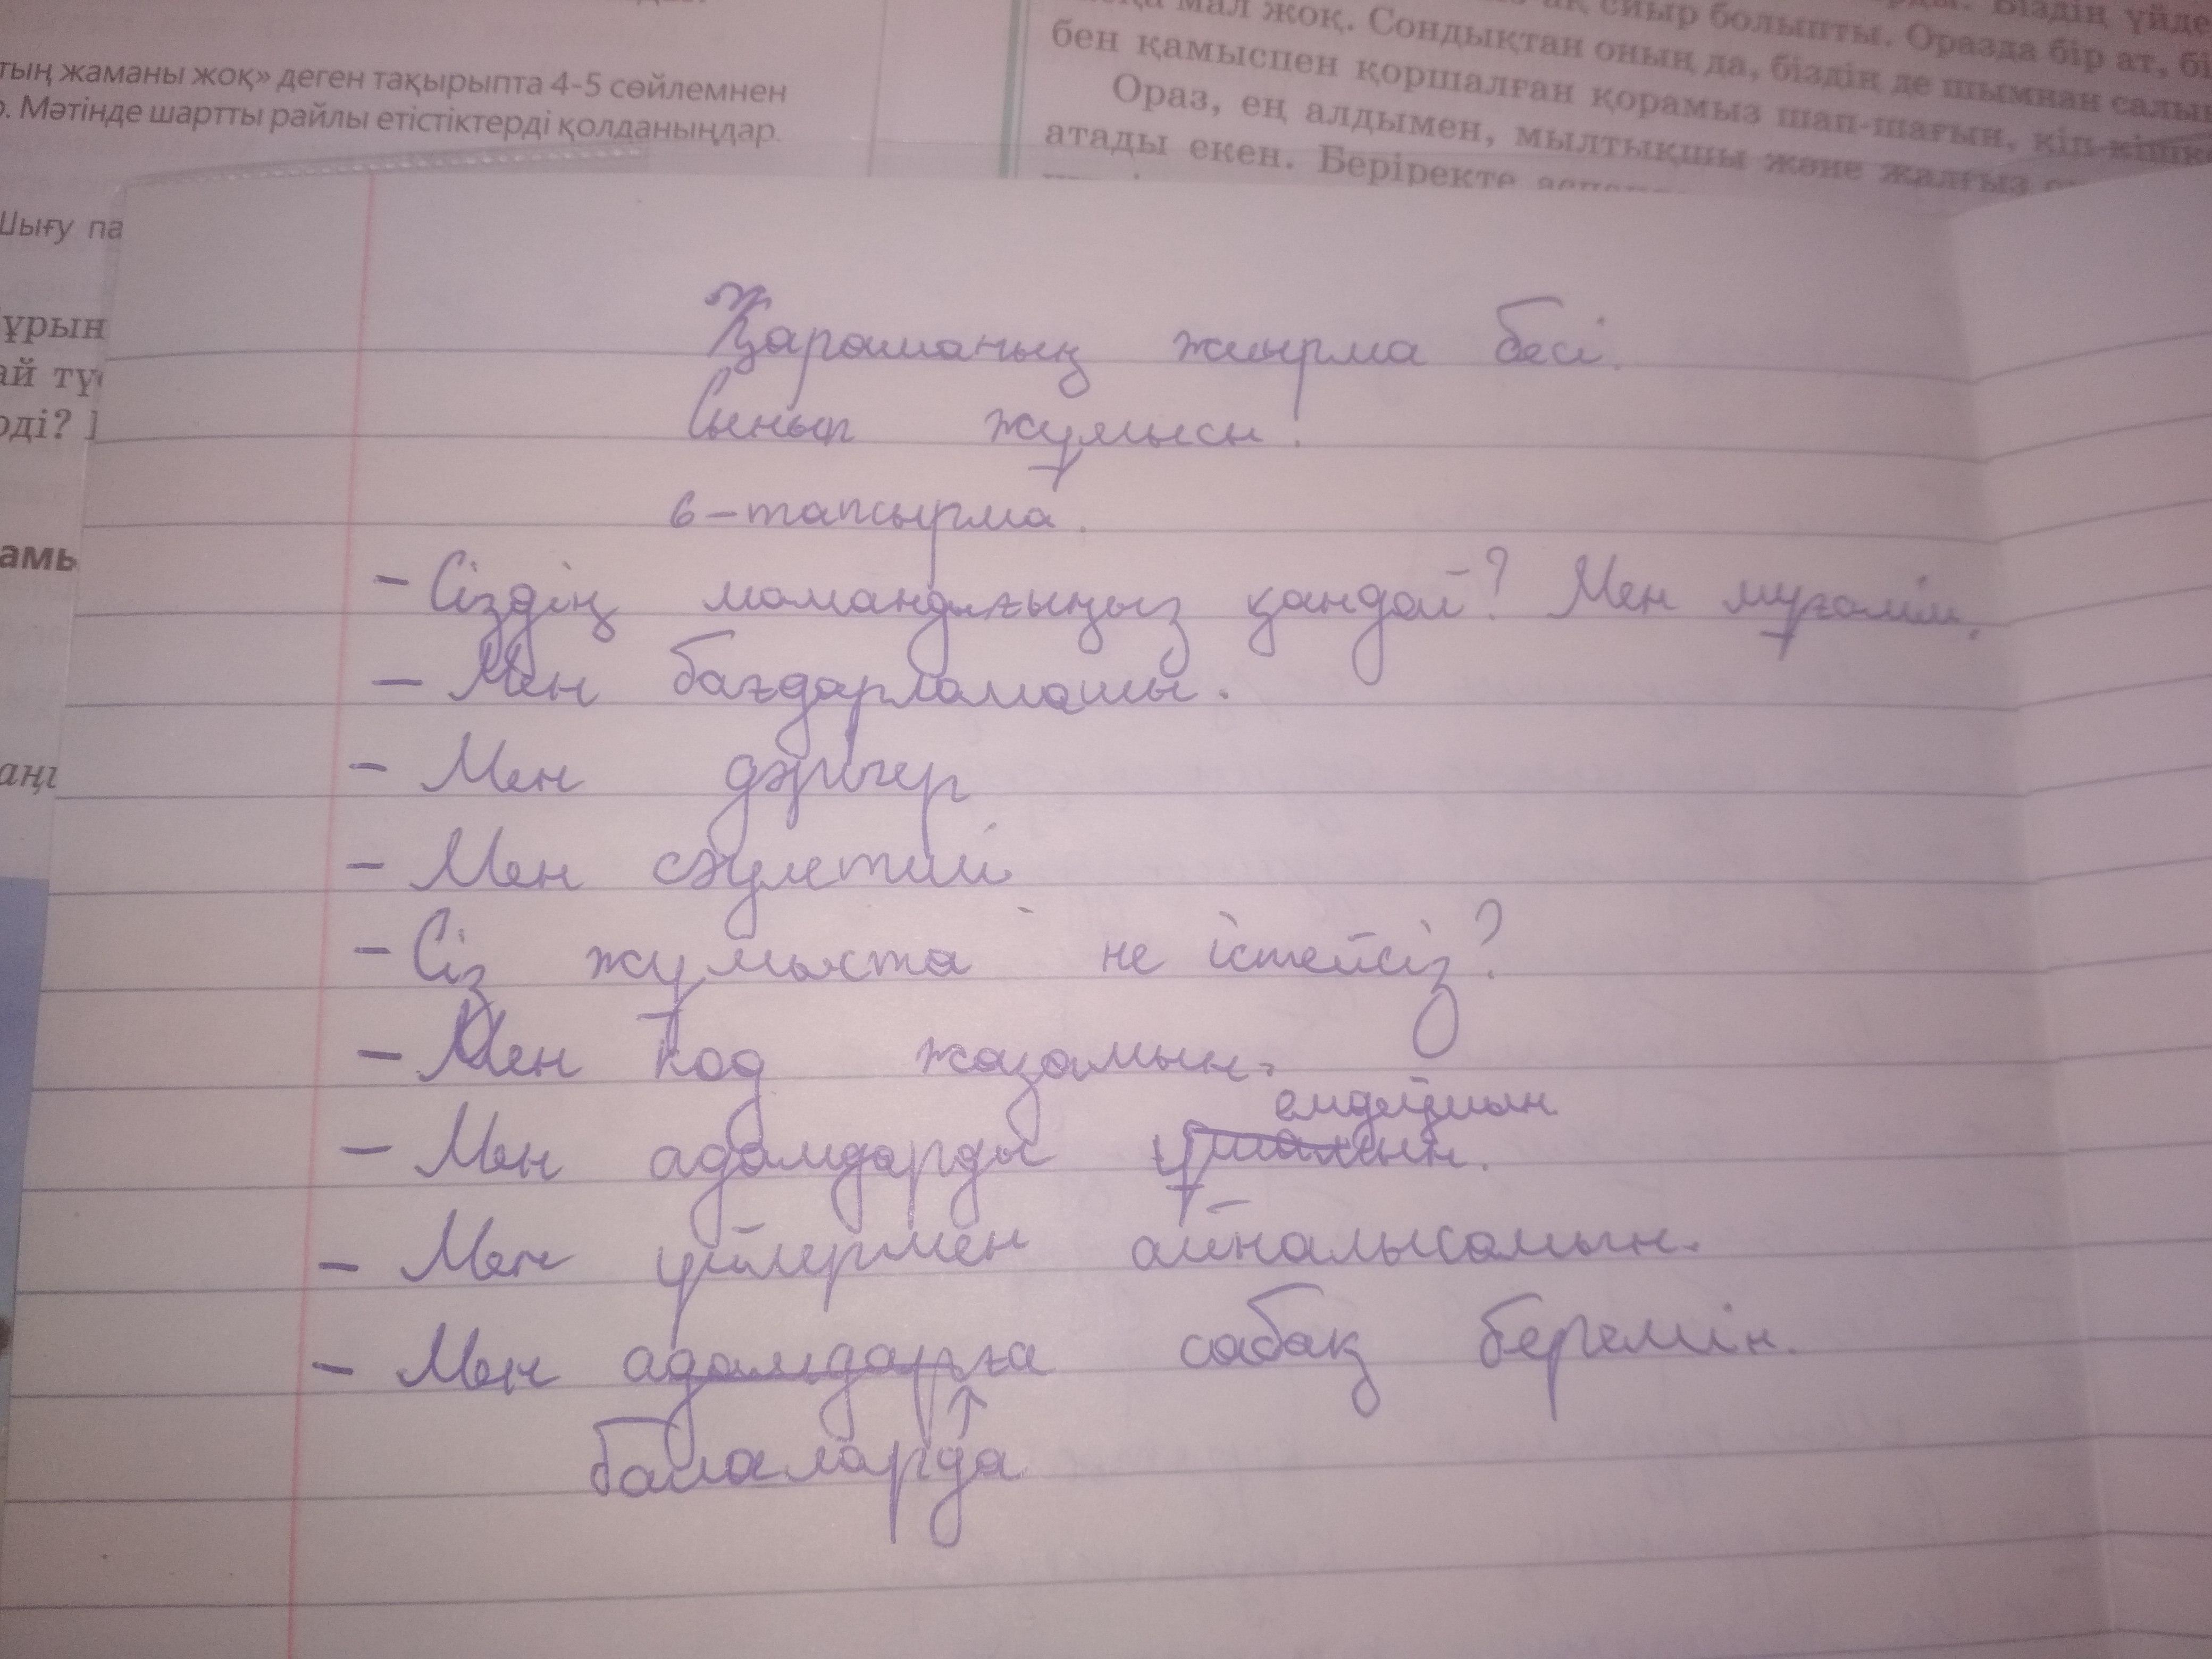 тың жаманы жоқ» деген тақырыпта 4-5 сөйлемнен
Мәтінде шартты райлы етістіктерді қолданыңдар.
Шығу па
ұрын
ай тү
рді?
амы
мал жоқ. Сондықтан оның да, біздің де шымнан салын
ақ сиыр болыпты. Оразда бір ат, бі
Біздің үйде
бен қамыспен қоршалған қорамыз шап-шағын, кіп-кішке
Ораз, ең алдымен, мылтықшы және жалғыз
атады екен. Беріректе
Қарашаның жиырма бесі.
Сынып жұмысы!
6-тапсырма.
- Сіздің мамандығыңыз қандай? Мен мұғалім.
- Мен бағдарламашы.
- Мен дәрігер
- Мен сәулетші
- Сіз жұмыста не істейсіз?
- Мен код жазамын.
емдеймін
- Мен адамдарды
- Мен үйлермен айналысамын.
- Мен адамдарға сабақ беремін.
↑
балаларда